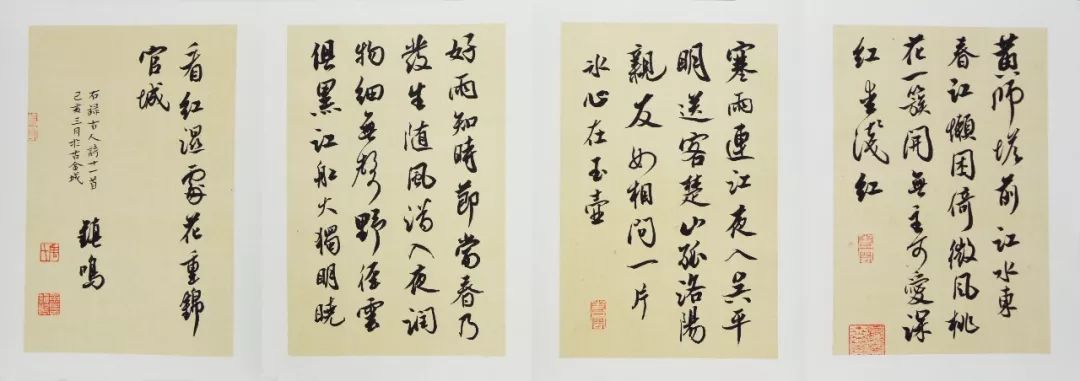 黄師塔前江水東
春江懶困倚微風桃
花一簇開無主可愛深
紅愛淺紅
寒雨連江夜入吴平
明送客楚山孤洛陽
親友如相問一片
冰心在玉壺
好雨知時節當春乃
發生随風潛入夜潤
物細無聲野徑雲
俱黑江船火獨明曉
看紅濕處花重錦
官城
右録古人詩十一首
己亥三月於古金城
鎮鳴